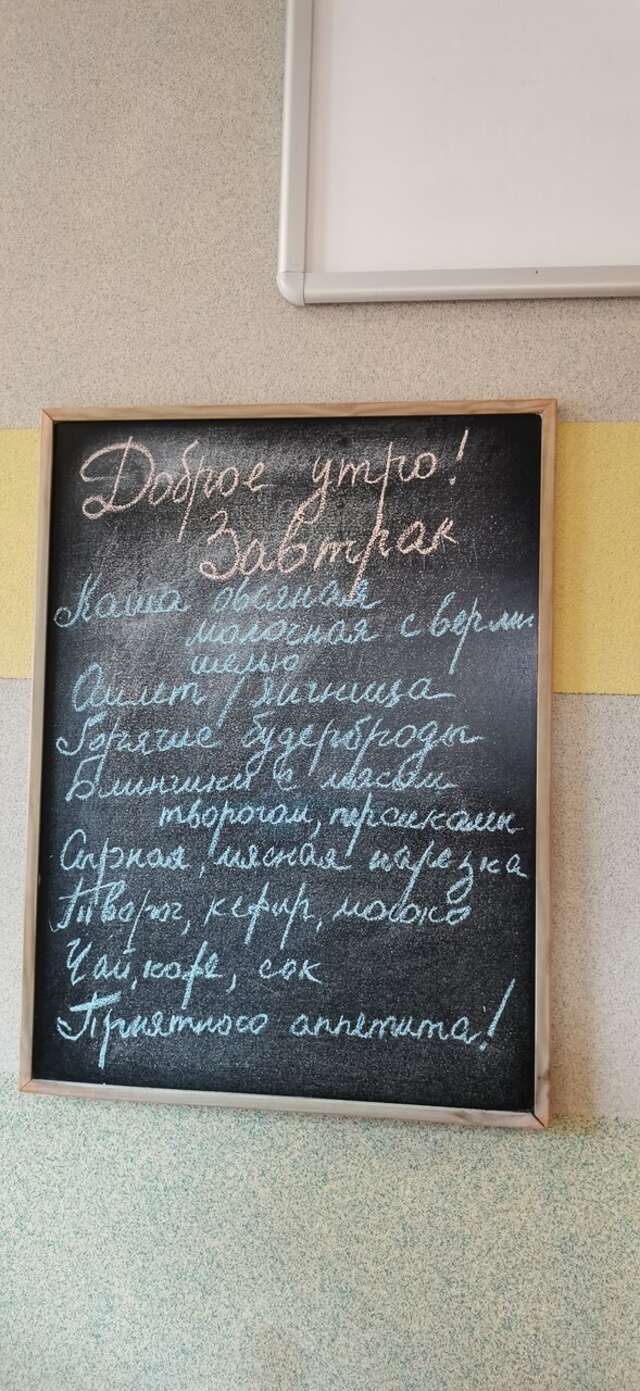 Доброе утро!
Завтрак
Каша овсяная
молочная с верми
шелью
Омлет / яичница
Горячие бутерброды
Блинчики с мясом
творогом, персиками
Сырная, мясная нарезка
Творог, кефир, молоко
Чай, кофе, сок
Приятного аппетита!